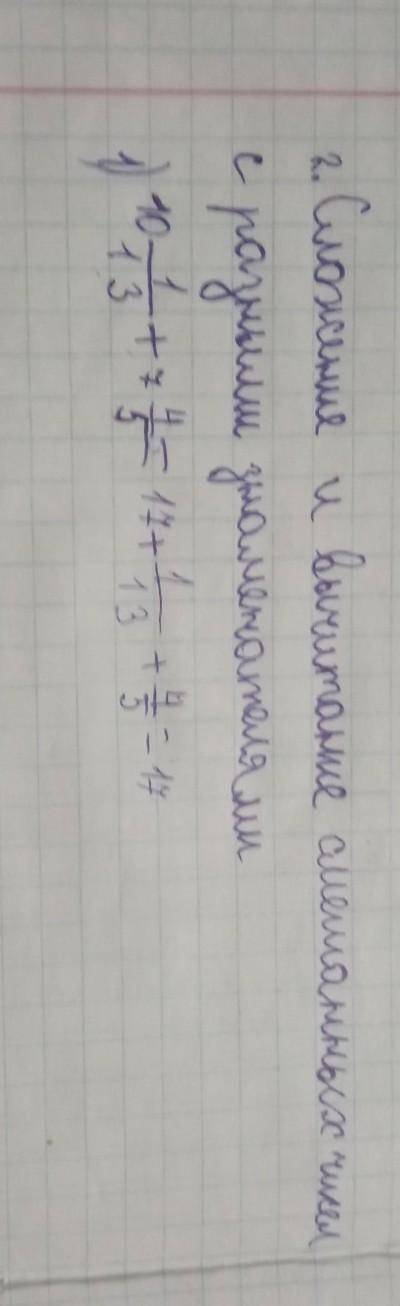 2. Сложение и вычитание смешанных чисел
с разными знаменателями
1) 10 1/13 + 7 4/5 = 17 + 1/13 + 4/5 = 17